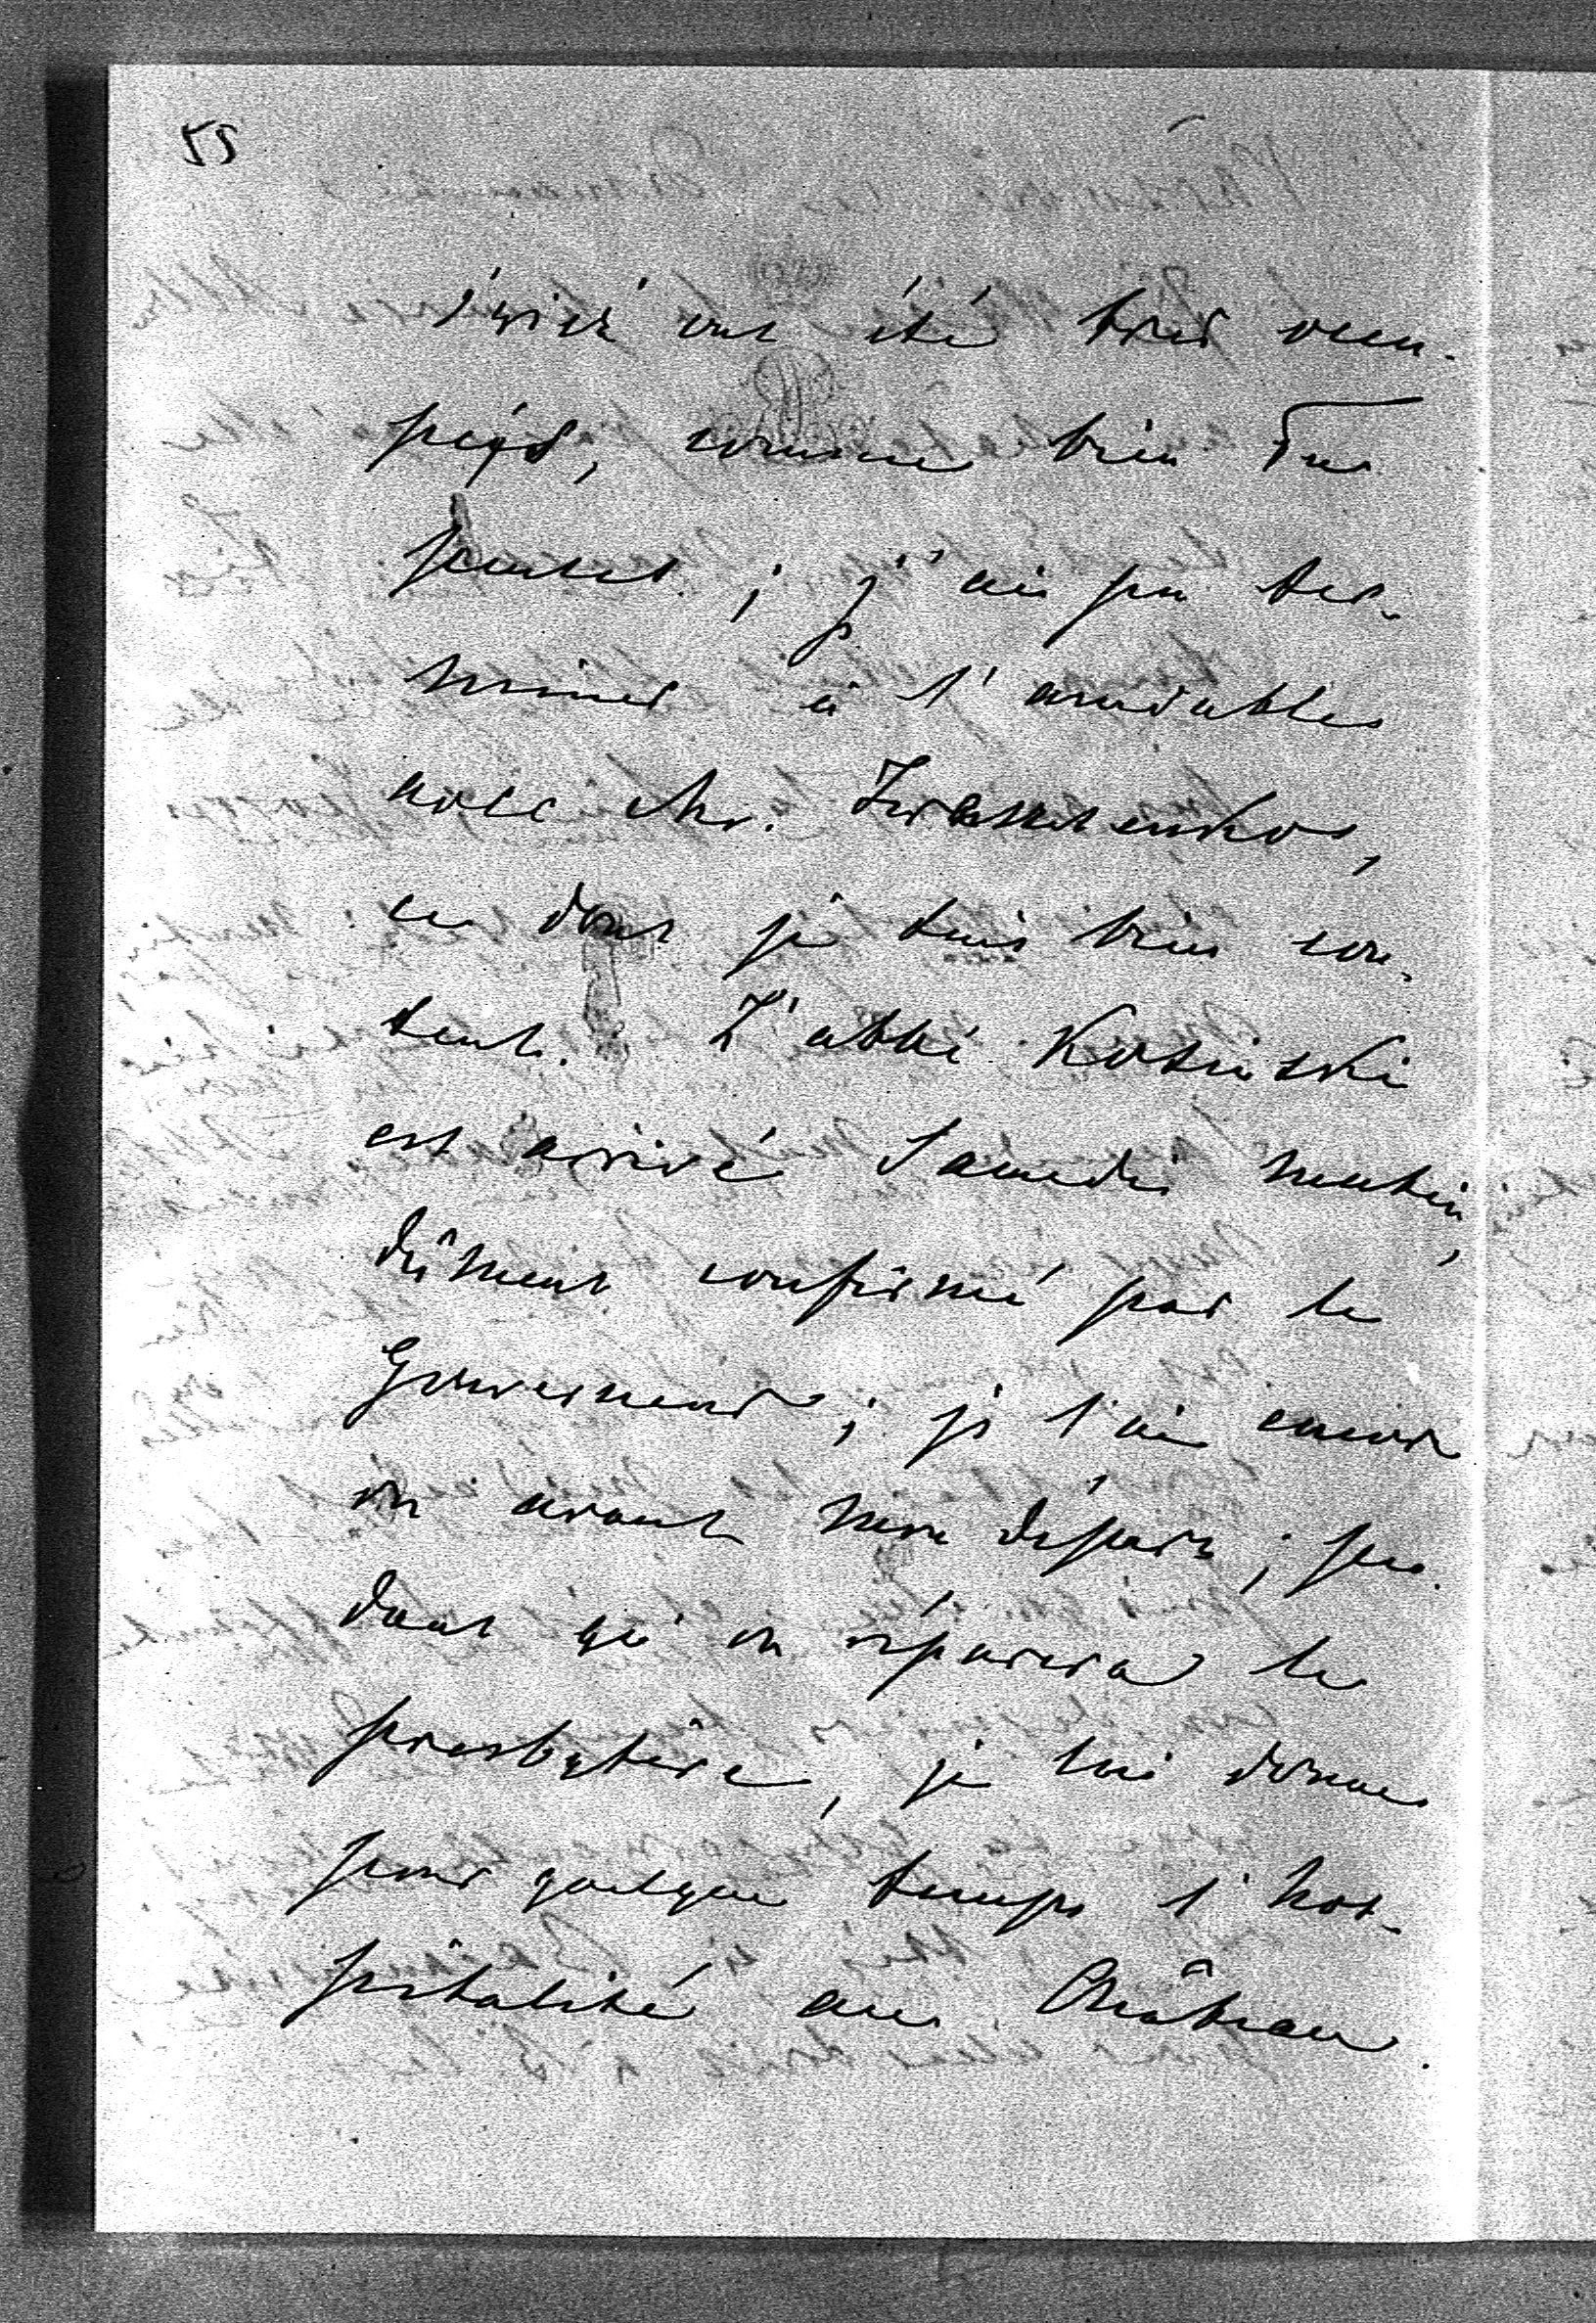 53
ont été très occu-
pés, comme bien Tu
penses ; j'ai pu ter-
miner à l'amiable
avec Mr.
ce dont je suis bien con-
tent. L'abbé Kosinski
est arrivé Samedi matin,
dûment confirmé par le
Gouverneur ; je l'ai encore
vu avant mon départ ; pen-
dant qu'on réparera le
presbytère, je lui donne
pour quelque temps l'hos-
pitalité au Château.